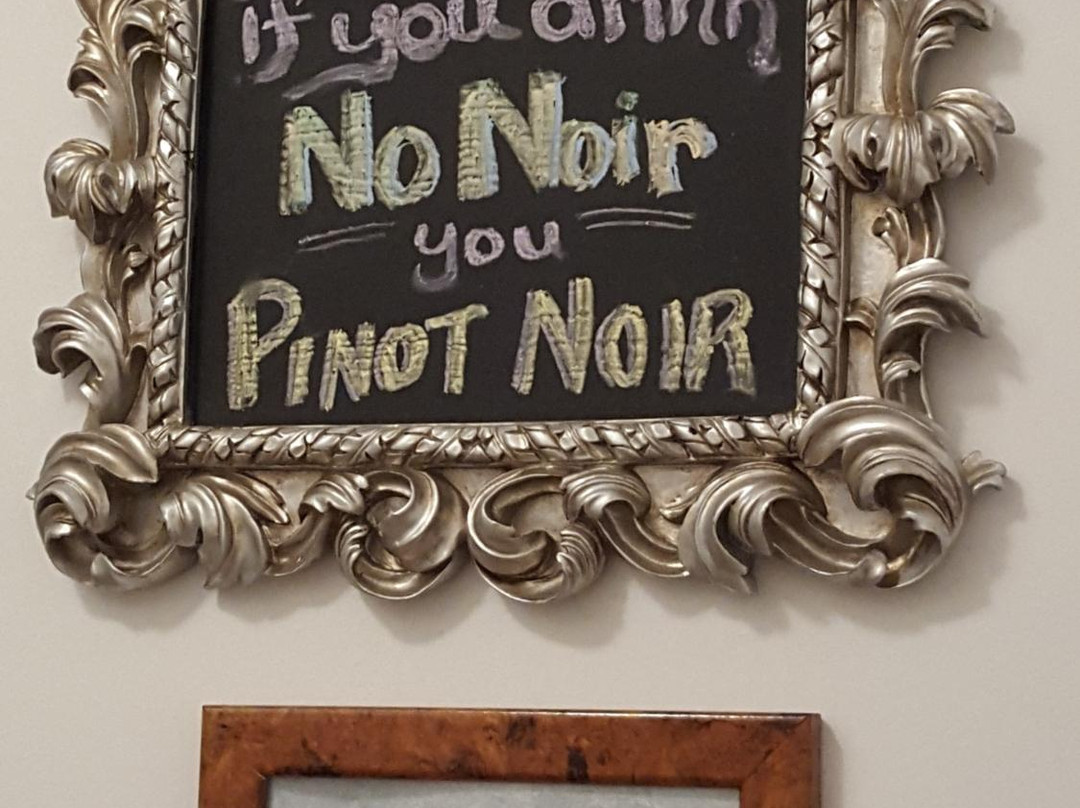 if you drink
No Noir
you
PINOT NOIR